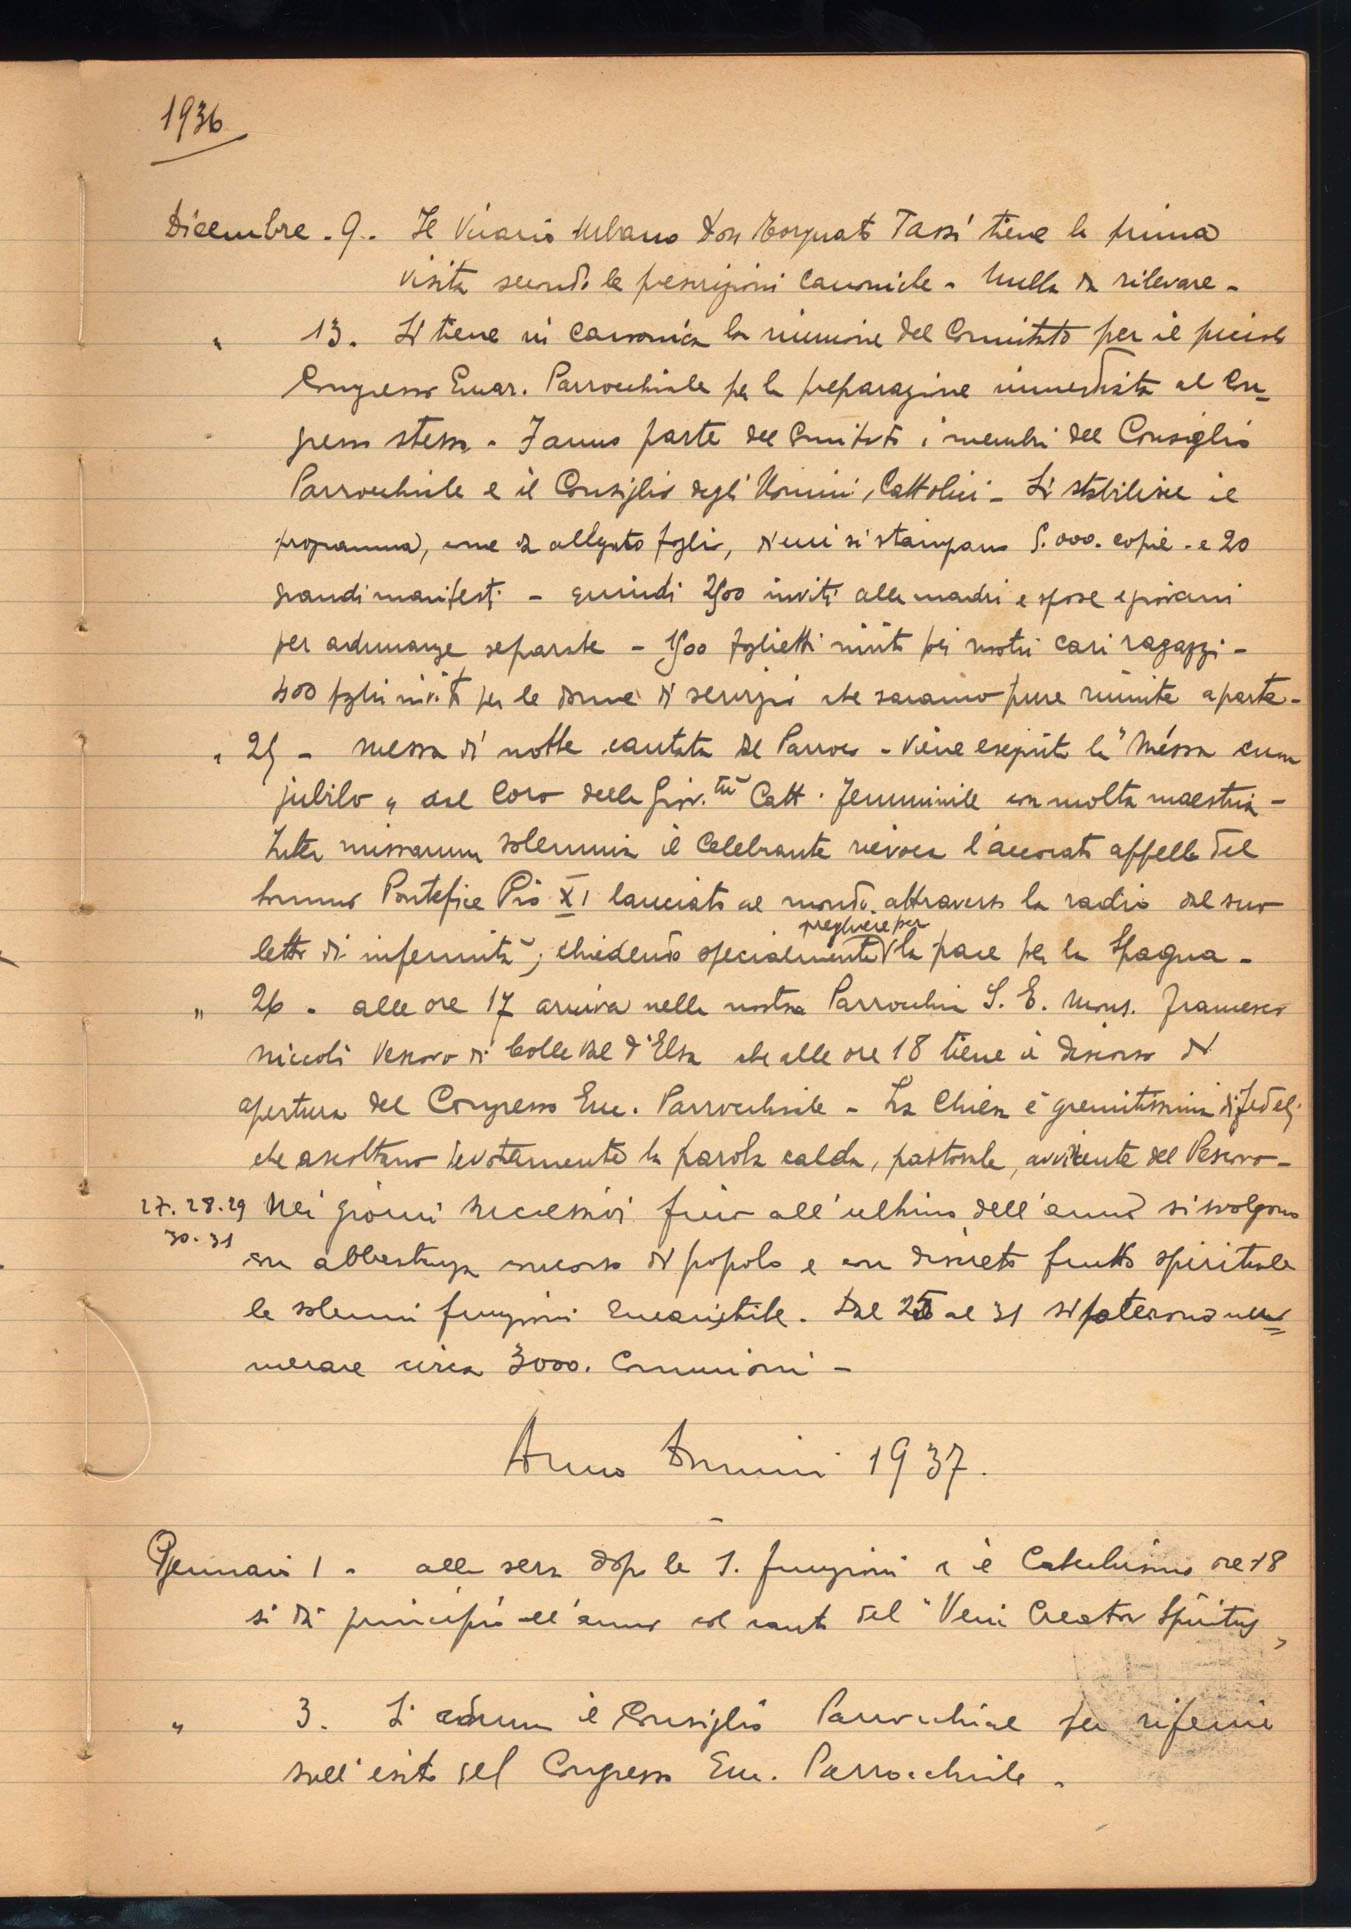 1936
Dicembre - 9. - Il Vicario Urbano Don Torquato Tassi tiene la prima
visita secondo le prescrizioni canoniche - Nulla da rilevare -
" 13. Si tiene in canonica la riunione del Comitato per il piccolo
Congresso Eucar. Parrocchiale per la preparazione immediata al Con-
gresso stesso - Fanno parte del Comitato i membri del Consiglio
Parrocchiale e il Consiglio degli Uomini Cattolici - Si stabilisce il
programma, come da allegato foglio, di cui si stampano 5.000. copie - e 20
grandi manifesti - quindi 2500 inviti alle madri e spose e giovani
per adunanze separate - 1500 foglietti invito pei nostri cari ragazzi -
400 foglietti inviti per le donne di servizio che saranno pure riunite a parte -
" 25 - Messa di notte cantata dal Parroco - Viene eseguita la "Messa cum
jubilo" dal Coro della Giov.tù Catt. Femminile con molta maestria -
Inter missarum solemnia il Celebrante rievoca l'accorato appello del
Sommo Pontefice Pio XI lanciato al mondo attraverso la radio dal suo
letto di infermità, chiedendo specialmente preghiere per la pace per la Spagna -
" 26 - alle ore 17 arriva nella nostra Parrocchia S. E. Mons. Francesco
Niccoli Vescovo di Colle Val d'Elsa che alle ore 18 tiene il discorso di
apertura del Congresso Euc. Parrocchiale - La Chiesa è gremitissima di fedeli
che ascoltano devotamente la parola calda, pastorale, avvincente del Vescovo -
27. 28. 29 Nei giorni successivi fino all'ultimo dell'anno si svolgono
30. 31 con abbastanza concorso di popolo e con discreto frutto spirituale
le solenni funzioni Eucaristiche. Dal 25 al 31 si poterono nu=
merare circa 3000. Comunioni -
Anno Domini 1937.
Gennaio 1 - alla sera dopo le S. funzioni e il Catechismo ore 18
si dà principio all'anno col canto del "Veni Creator Spiritus"
" 3. Si aduna il Consiglio Parrocchiale per riferire
sull'esito del Congresso Euc. Parrocchiale -